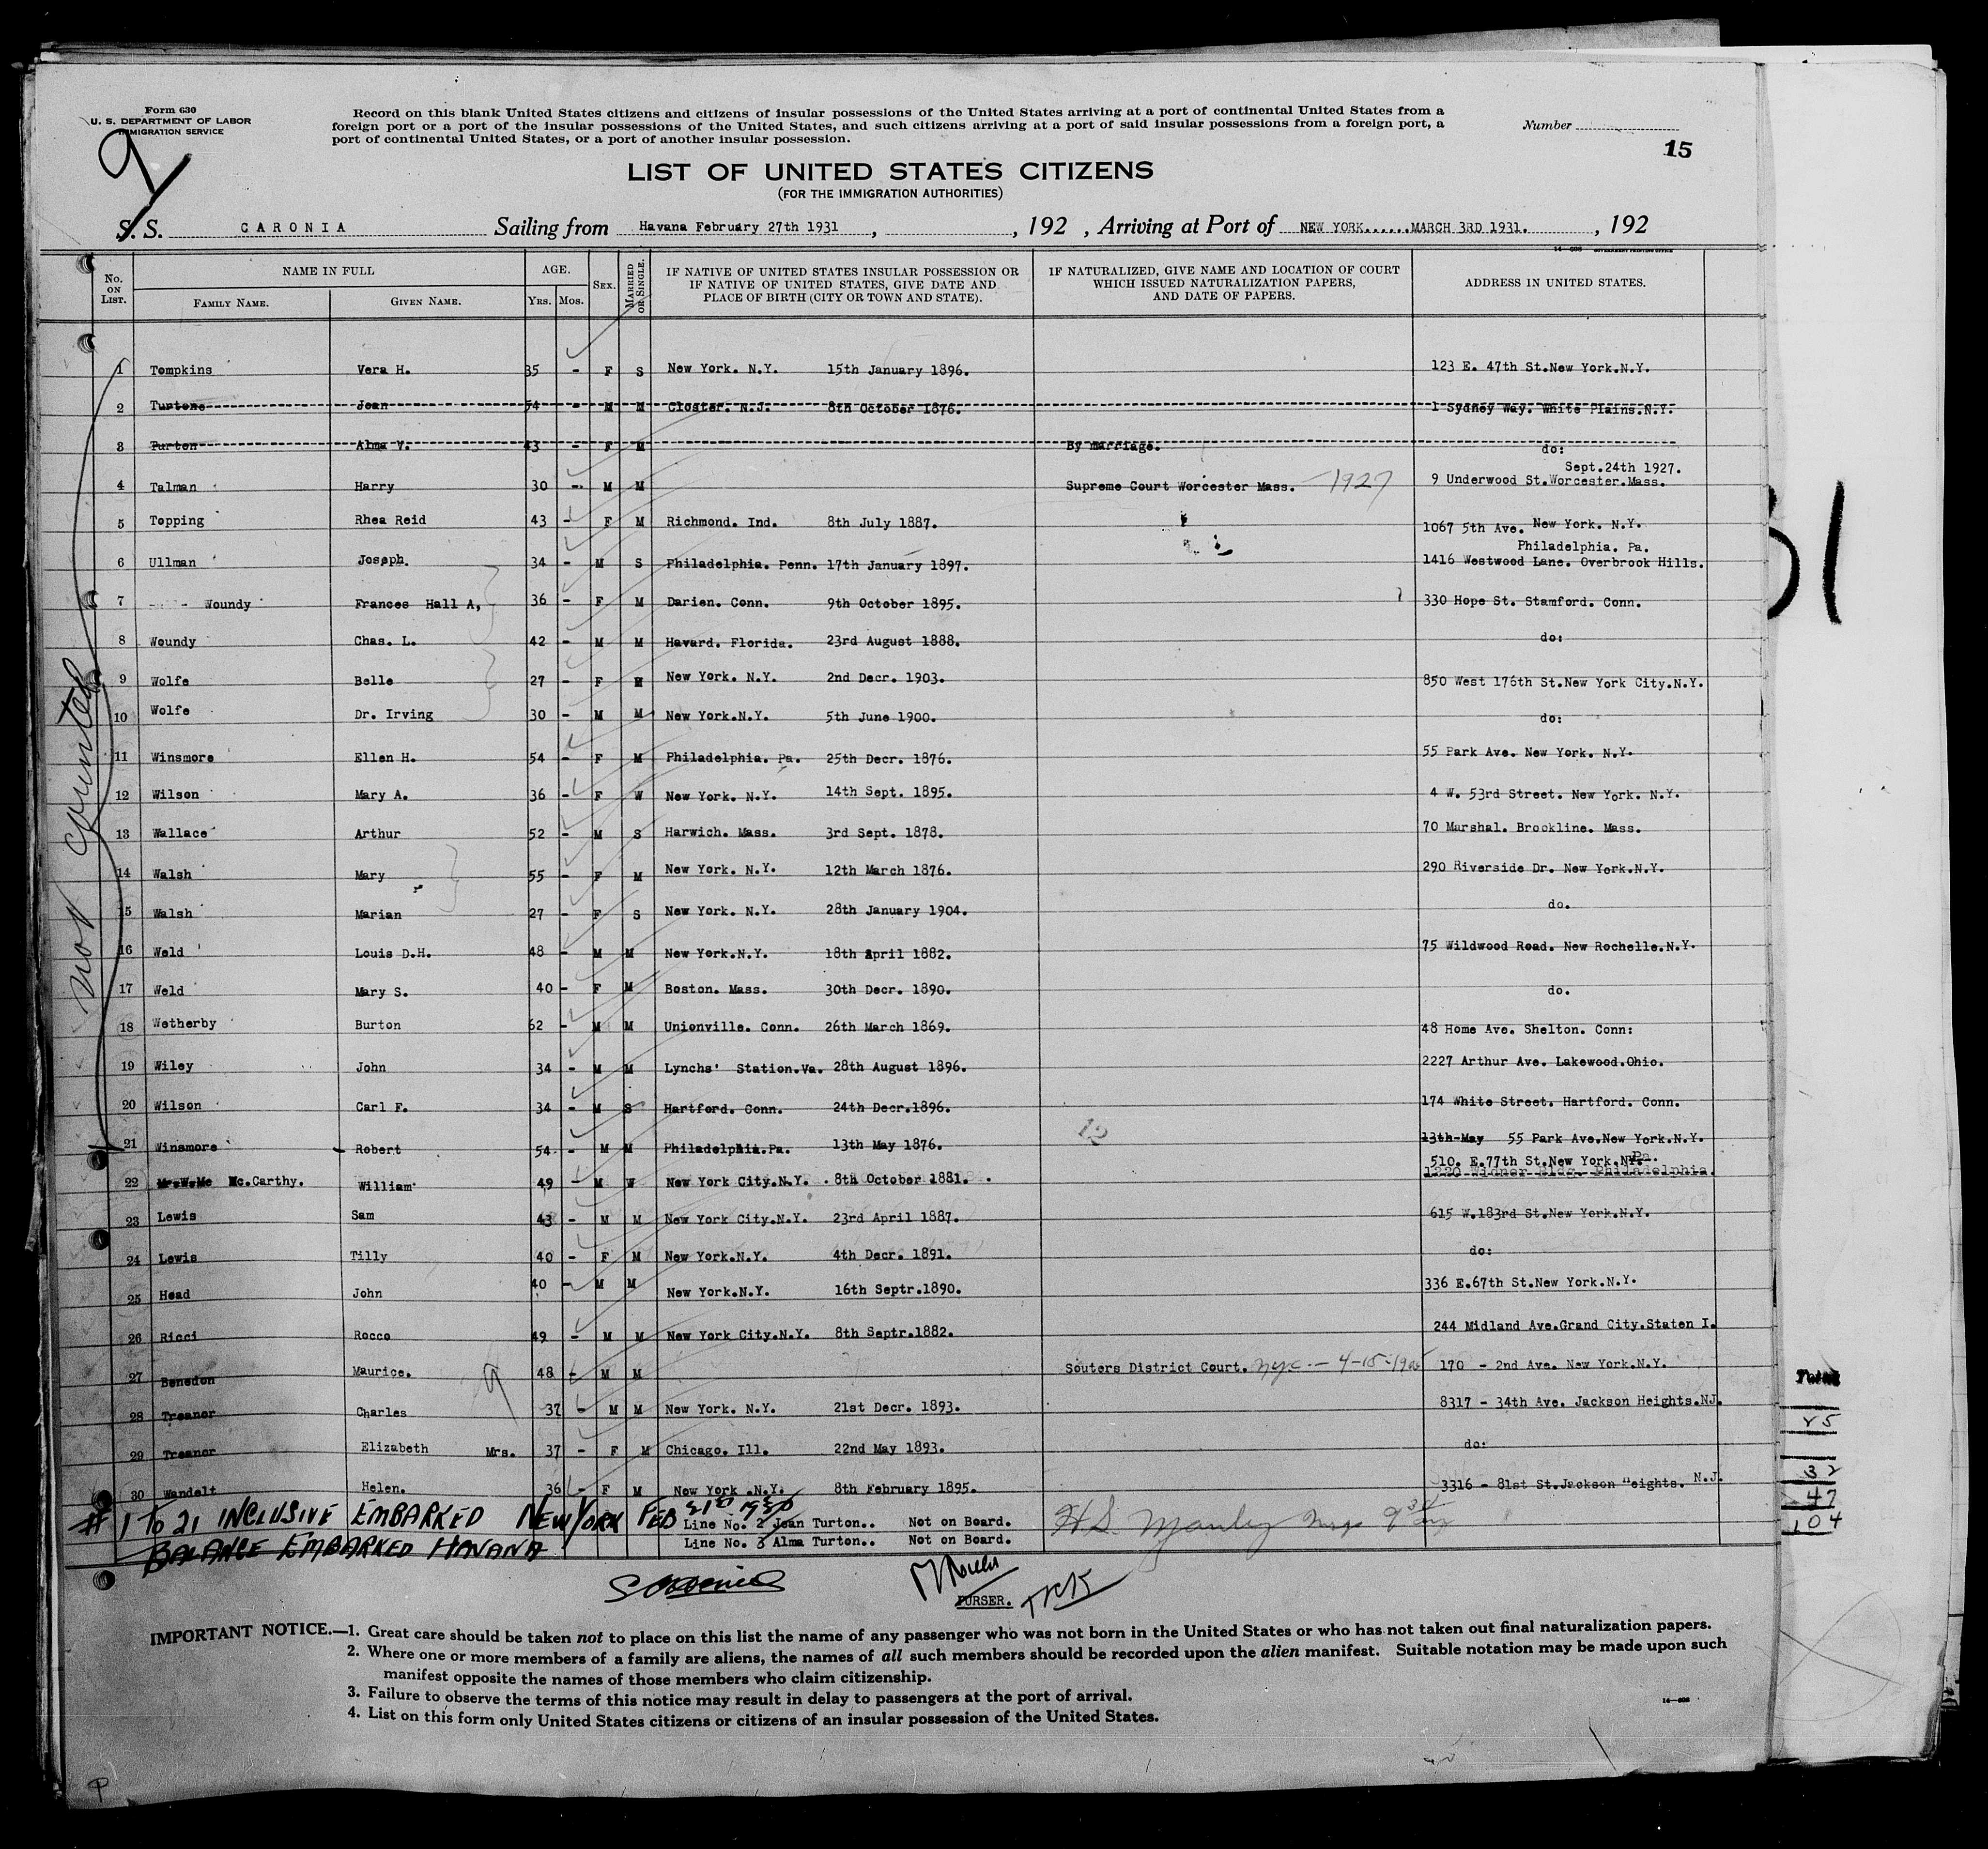 Form 630
U. S. DEPARTMENT OF LABOR
IMMIGRATION SERVICE
Record on this blank United States citizens and citizens of insular possessions of the United States arriving at a port of continental United States from a
foreign port or a port of the insular possessions of the United States, and such citizens arriving at a port of said insular possessions from a foreign port, a
port of continental United States, or a port of another insular possession.
Number
15
LIST OF UNITED STATES CITIZENS
(FOR THE IMMIGRATION AUTHORITIES)
S. S. CARONIA Sailing from Havana February 27th 1931 , , 192 , Arriving at Port of NEW YORK......MARCH 3RD 1931. , 192
14—698 GOVERNMENT PRINTING OFFICE
No. ON LIST. NAME IN FULL FAMILY NAME. GIVEN NAME. AGE. Yrs. Mos. SEX. MARRIED OR SINGLE. IF NATIVE OF UNITED STATES INSULAR POSSESSION OR IF NATIVE OF UNITED STATES, GIVE DATE AND PLACE OF BIRTH (CITY OR TOWN AND STATE). IF NATURALIZED, GIVE NAME AND LOCATION OF COURT WHICH ISSUED NATURALIZATION PAPERS, AND DATE OF PAPERS. ADDRESS IN UNITED STATES.
1 Tompkins Vera H. 35 - F S New York. N.Y. 15th January 1896. 123 E. 47th St.New York.N.Y.
2 Turtons Jean 54 - M M Closter. N.J. 8th October 1876. 1 Sydney Way. White Plains.N.Y.
3 Turton Alma V. 43 - F M By marriage. do:
Sept.24th 1927.
4 Talman Harry 30 - M M Supreme Court Worcester Mass. - 1927 9 Underwood St.Worcester.Mass.
5 Topping Rhea Reid 43 - F M Richmond. Ind. 8th July 1887. 1067 5th Ave. New York. N.Y.
Philadelphia. Pa.
6 Ullman Joseph. 34 - M S Philadelphia. Penn. 17th January 1897. 1416 Westwood Lane. Overbrook Hills.
7 Woundy Frances Hall A, 36 - F M Darien. Conn. 9th October 1895. 330 Hope St. Stamford. Conn.
8 Woundy Chas. L. 42 - M M Havard. Florida. 23rd August 1888. do:
9 Wolfe Belle 27 - F M New York. N.Y. 2nd Decr. 1903. 850 West 176th St.New York City.N.Y.
10 Wolfe Dr. Irving 30 - M M New York.N.Y. 5th June 1900. do:
11 Winsmore Ellen H. 54 - F M Philadelphia. Pa. 25th Decr. 1876. 55 Park Ave. New York. N.Y.
12 Wilson Mary A. 36 - F W New York. N.Y. 14th Sept. 1895. 4 W. 53rd Street. New York. N.Y.
13 Wallace Arthur 52 - M S Harwich. Mass. 3rd Sept. 1878. 70 Marshal. Brookline. Mass.
14 Walsh Mary 55 - F M New York. N.Y. 12th March 1876. 290 Riverside Dr. New York.N.Y.
15 Walsh Marian 27 - F S New York. N.Y. 28th January 1904. do.
16 Weld Louis D.H. 48 - M M New York.N.Y. 18th April 1882. 75 Wildwood Road. New Rochelle.N.Y.
17 Weld Mary S. 40 - F M Boston. Mass. 30th Decr. 1890. do.
18 Wetherby Burton 62 - M M Unionville. Conn. 26th March 1869. 48 Home Ave. Shelton. Conn:
19 Wiley John 34 - M M Lynchs' Station.Va. 28th August 1896. 2227 Arthur Ave. Lakewood.Ohio.
20 Wilson Carl F. 34 - M S Hartford. Conn. 24th Decr.1896. 174 White Street. Hartford. Conn.
21 Winsmore Robert 54 - M M Philadelphia.Pa. 13th May 1876. 12 13th May 55 Park Ave.New York.N.Y.
510. E.77th St.New York.N.Y. Pa.
22 Mc.Carthy. William 49 - M W New York City.N.Y. 8th October 1881. 1220 Widner Bldg. Philadelphia.
23 Lewis Sam 43 - M M New York City.N.Y. 23rd April 1887. 615 W.183rd St.New York.N.Y.
24 Lewis Tilly 40 - F M New York.N.Y. 4th Decr. 1891. do:
25 Head John 40 - M M New York.N.Y. 16th Septr.1890. 336 E.67th St.New York.N.Y.
26 Ricci Rocco 49 - M M New York City.N.Y. 8th Septr.1882. 244 Midland Ave.Grand City.Staten I.
27 Benedon Maurice. 48 - M M Souters District Court. 170 - 2nd Ave. New York.N.Y.
28 Treanor Charles 37 - M M New York. N.Y. 21st Decr. 1893. 8317 - 34th Ave. Jackson Heights.NJ.
29 Treanor Elizabeth Mrs. 37 - F M Chicago. Ill. 22nd May 1893. do:
30 Wandelt Helen. 36 - F M New York .N.Y. 8th February 1895. 3316 - 81st St.Jackson Heights. N.J.
# 1 To 21 INCLUSIVE EMBARKED NEW YORK FEB
Line No. 2 Jean Turton.. Not on Board.
BALANCE EMBARKED HAVANA
Line No. 3 Alma Turton.. Not on Board.
PURSER.
not counted
Total
32
47
104
IMPORTANT NOTICE.—1. Great care should be taken not to place on this list the name of any passenger who was not born in the United States or who has not taken out final naturalization papers.
2. Where one or more members of a family are aliens, the names of all such members should be recorded upon the alien manifest. Suitable notation may be made upon such
manifest opposite the names of those members who claim citizenship.
3. Failure to observe the terms of this notice may result in delay to passengers at the port of arrival.
4. List on this form only United States citizens or citizens of an insular possession of the United States.
14—698